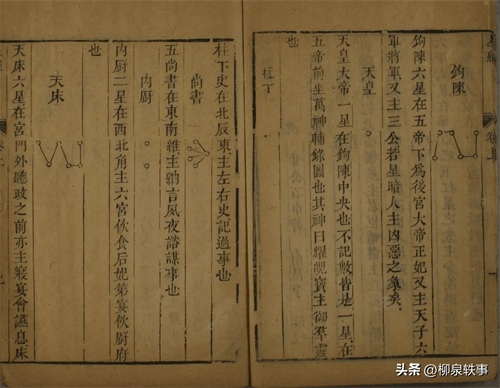 鉤陳
鉤陳六星在五帝下為後宮大帝正妃又主天子六
軍將軍又主三公若星暗人主凶惡之象矣
天皇
天皇大帝一星在鉤陳中央也不記數皆是一星在
五帝前坐萬神輔錄圖也其神曰耀魄寶主御羣靈
也
柱下
柱下史在北辰東主左右史記過事也
尚書
五尚書在東南維主納言夙夜諮謀事也
內厨
內厨二星在西北角主六宮飲食后妃第宴飲厨府
也
天床
天床六星在宮門外聽政之前亦主寢宴會讌息床
头条 @柳泉轶事